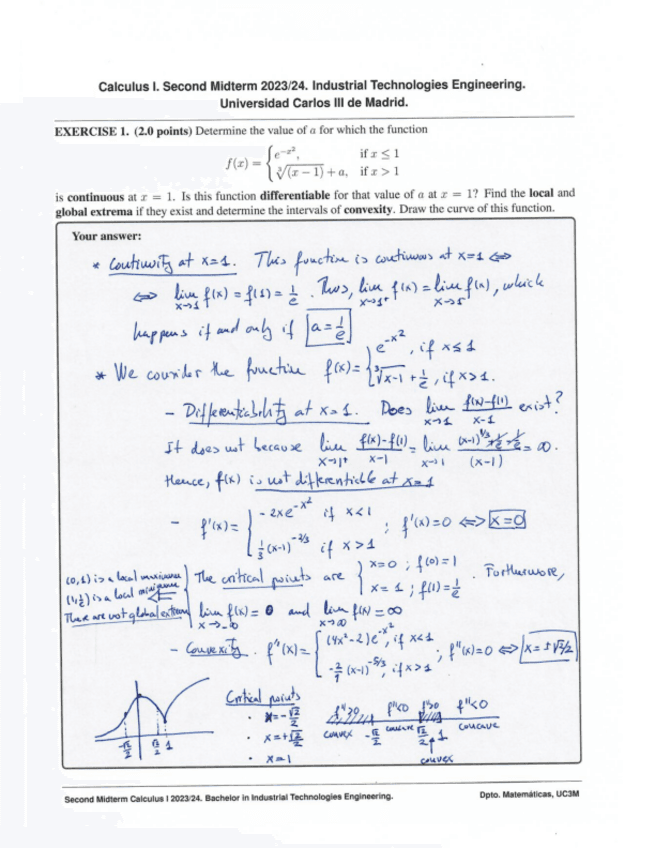 Calculus I. Second Midterm 2023/24. Industrial Technologies Engineering.
Universidad Carlos III de Madrid.
EXERCISE 1. (2.0 points) Determine the value of a for which the function
f(x) = { e^{-x²}, if x ≤ 1
∛(x − 1) + a, if x > 1
is continuous at x = 1. Is this function differentiable for that value of a at x = 1? Find the local and
global extrema if they exist and determine the intervals of convexity. Draw the curve of this function.
Your answer:
* Continuity at x=1. This function is continuous at x=1 ⇔
⇔ lim_{x→1} f(x) = f(1) = 1/e. Thus, lim_{x→1⁺} f(x) = lim_{x→1⁻} f(x), which
happens if and only if a = 1/e
* We consider the function f(x) = { e^{-x²}, if x ≤ 1
∛x-1 + 1/e, if x > 1.
- Differentiability at x=1. Does lim_{x→1} (f(x)-f(1))/(x-1) exist?
It does not because lim_{x→1⁺} (f(x)-f(1))/(x-1) = lim_{x→1} ((x-1)^{1/3} + 1/e - 1/e)/(x-1) = ∞.
Hence, f(x) is not differentiable at x=1
- f'(x) = { -2xe^{-x²} if x<1
1/3 (x-1)^{-2/3} if x>1 ; f'(x)=0 ⇔ x=0
(0,1) is a local maximum
(1,1/e) is a local minimum
There are not global extrema
The critical points are { x=0 ; f(0)=1
x=1 ; f(1)=1/e . Furthermore,
lim_{x→-∞} f(x) = 0 and lim_{x→∞} f(x) = ∞
- Convexity. f''(x) = { (4x²-2)e^{-x²}, if x<1
-2/9 (x-1)^{-5/3}, if x>1 ; f''(x)=0 ⇔ x = ±√2/2
Critical points
· x=-√2/2
· x=+√2/2
· x=1
f''>0 f''<0 f''>0 f''<0
convex -√2/2 concave √2/2 1 concave
convex
-√2/2 √2/2 1
Second Midterm Calculus I 2023/24. Bachelor in Industrial Technologies Engineering.
Dpto. Matemáticas, UC3M